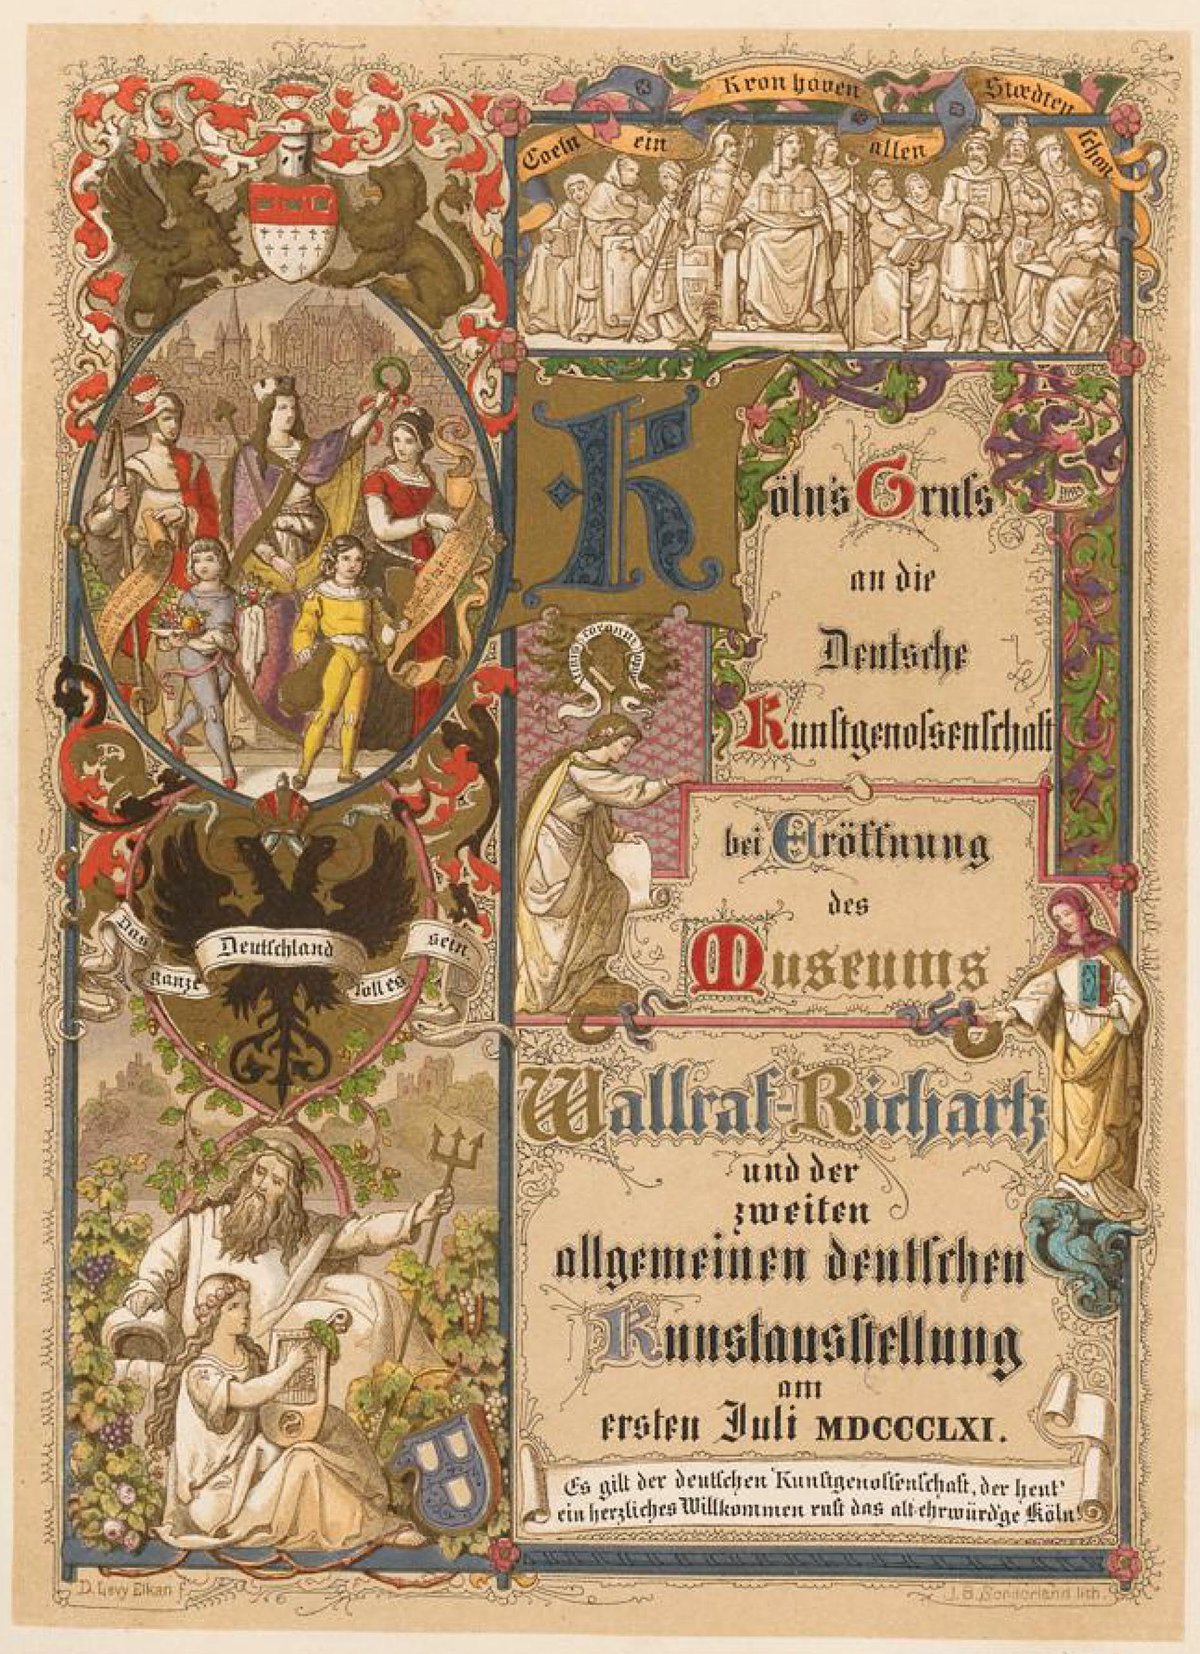 Coeln ein Kron boven allen Stædten schon
Köln's Gruſs
an die
Deutsche
Kunſtgenoſsenſchaft
bei Eröffnung
des
Museums
Wallraf-Richartz
und der
zweiten
allgemeinen deutſchen
Kunstausſtellung
am
ersten Juli MDCCCLXI.
Es gilt der deutſchen Kunſtgenoſſenſchaft, der heut'
ein herzliches Willkommen ruft das alt-ehrwürd'ge Köln!
Das ganze Deutſchland ſoll es sein.
D. Levy Elkan f
J. B. Sonderland lith.